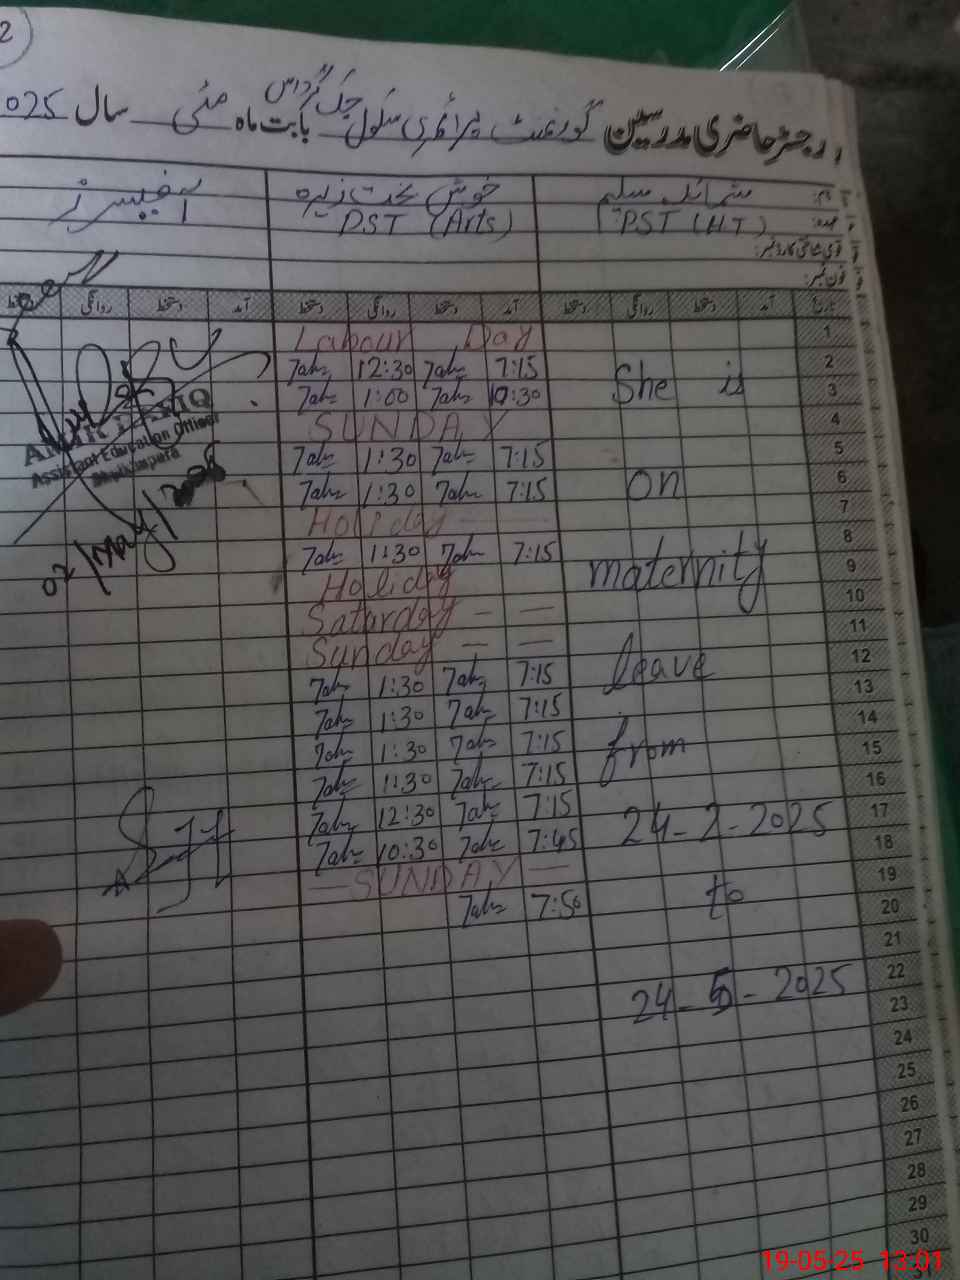 2
رجسٹر حاضری مدرسین گورنمنٹ پرائمری سکول چک بابت ماہ مئی سال 2025
نام: شمائلہ سلیم خوش بخت زہرہ آفیسرز
عہدہ: PST (HT) PST (Arts)
قومی شناختی کارڈ نمبر:
فون نمبر:
تاریخ آمد دستخط روانگی دستخط آمد دستخط روانگی دستخط آمد دستخط روانگی دستخط
1 Labour Day
2 7:15 12:30
3 10:30 1:00
4 SUNDAY
5 7:15 1:30
6 7:15 1:30
7 Holiday
8 7:15 1:30
9 Holiday
10 Saturday
11 Sunday
12 7:15 1:30
13 7:15 1:30
14 7:15 1:30
15 7:15 1:30
16 7:15 12:30
17 7:45 10:30
18 SUNDAY
19 7:50
20
21
22
23
24
25
26
27
28
29
30
She is
on
maternity
leave
from
24-2-2025
to
24-5-2025
Assistant Education Officer
07/May/2025
19-05-25 13:01